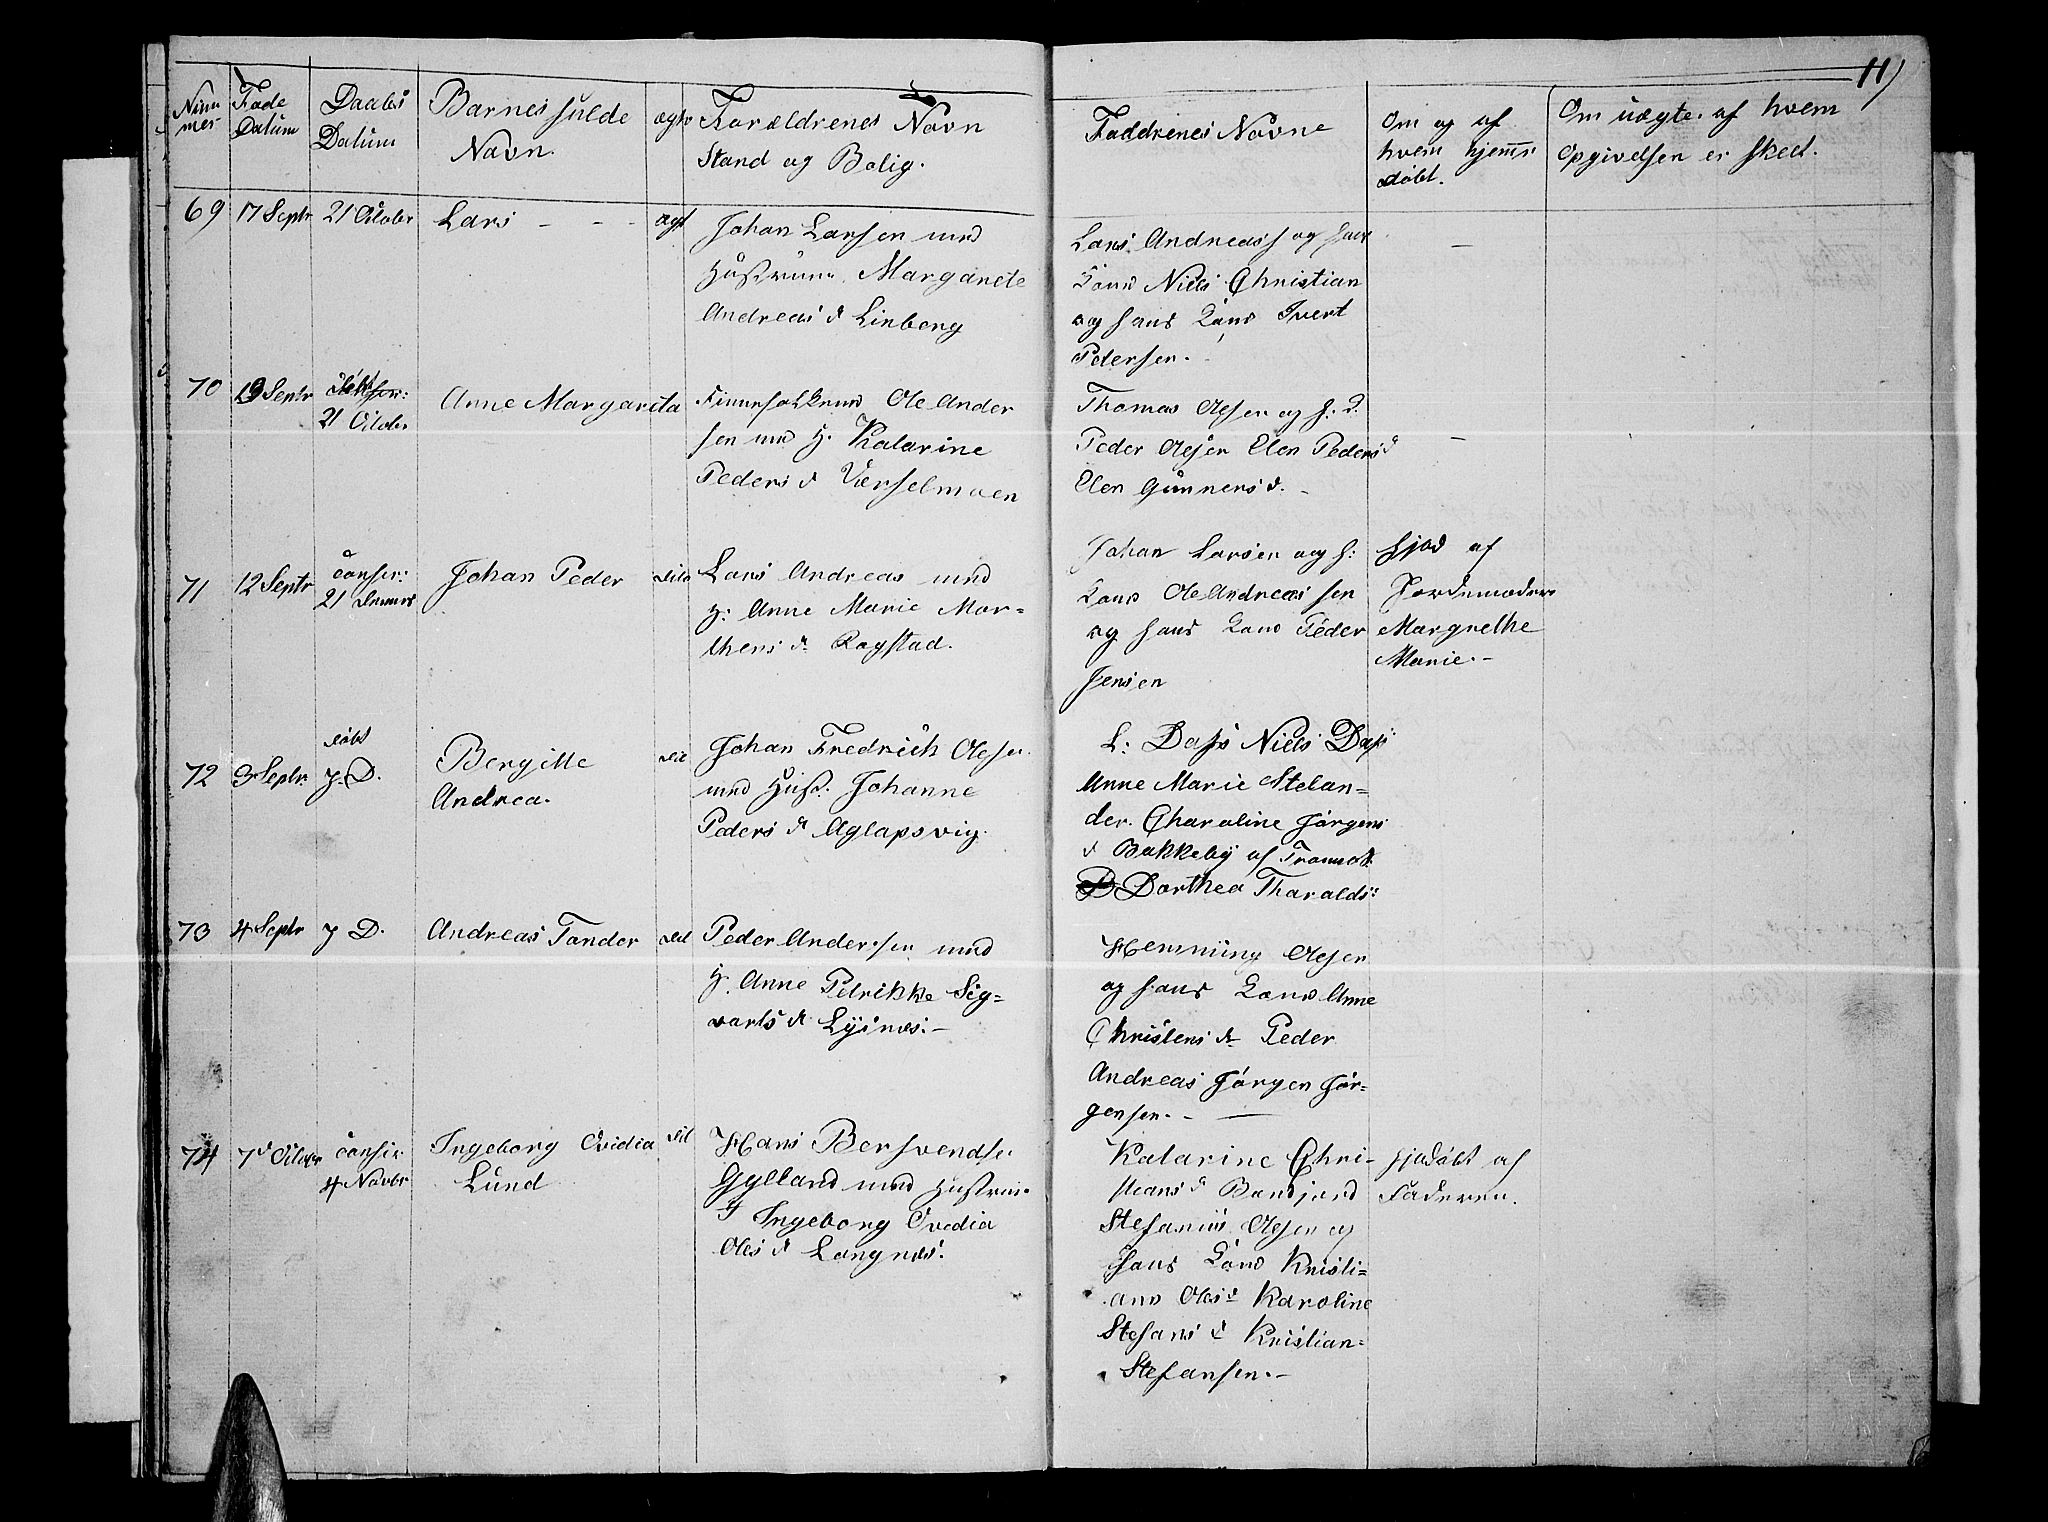 11
Num
mer
Føde
Datum
Daabs
Datum
Barnes fulde
Navn.
ægte
Forældrenes Navn
Stand og Bolig.
Faddrenes Navne
Om og af
hvem hjemme
døbt.
Om uægte. af hvem
Opgivelsen er skeet.
69 17 Septr 21 Octobr Lars - - - ægt
Johan Larsen med
Hustrue. Margarete
Andreas d Linberg
Lars Andreass og hans
Kone Niels Christian
og hans Kone Ivert
Pedersen.
-
70 19 Septr
21 Octobr
Anne Margarita
Ole Ander
sen med H. Katarine
Peders d Værselmoen
Thomas Olesen og h: K.
Peder Olesen Elen Peders d
Elen Gunners d. -
-
71 12 Septr
conser:
21
Johan Peder dito
Lars Andreas med
H: Anne Marie Mor=
thens d. Rogstad.
Johan Larsen og h:
Kone Ole Andreas sen
og hans Kone Peder
Jensen
hjød af
Jordemoder
Margrethe
Marie. -
72 3 Septr
døbt
7. D.
Bergitte
Andrea.
dit
Johan Fredrich Olesen
med Hust: Johanne
Peders d Aglapsvig.
L: Dass Niels Dass
Anne Marie Stelan=
der. Charoline Jørgens
d Bakkeby af Tromsø
Dorthea Tharalds:
73 4 Septr 7 D. Andreas Tander dit
Peder Andersen med
H. Anne Petrikke Sig=
varts d Lysnes: -
Hemming Olesen
og hans Kone Anne
Christens d. Peder
Andreas Jørgen Jør=
gensen. -
74 7d Octobr
conser
4 Novbr
Ingeborg Ovidia
Lund
dit
Hans Bersvendsen
Gylland med Hustrue
Ingeborg Ovedia
Oles d Langnes.
Katarine Chri-
stians d Bonjord
Stefanus Olesen og
hans Kone Kristi=
ane Oles d Karoline
Stefans d Kristian=
Stefansen. -
hjdøbt af
Faderen.